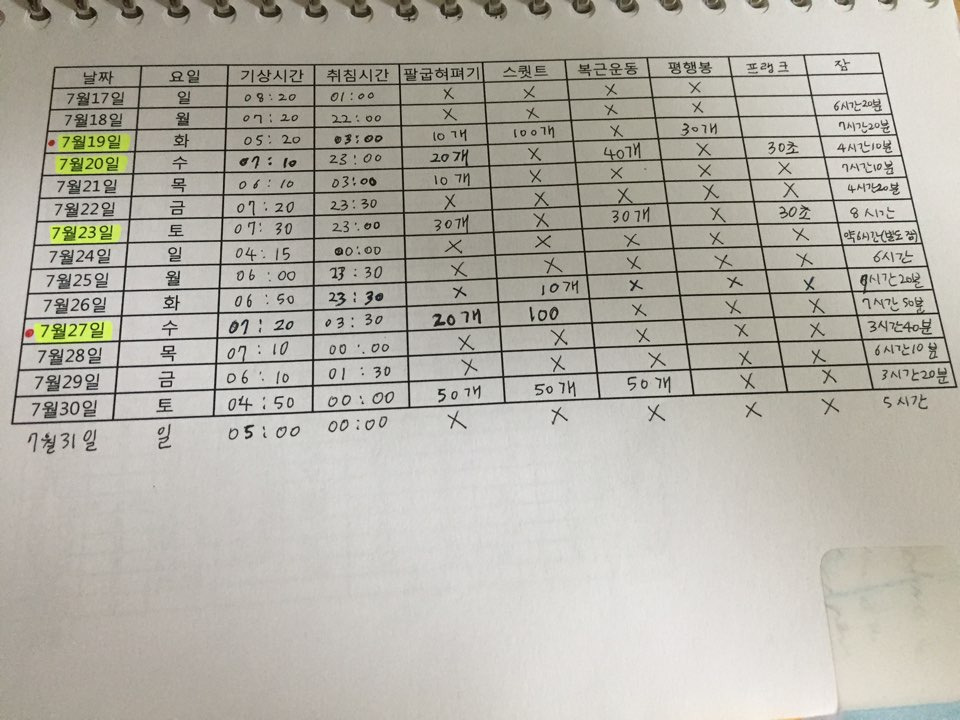 날짜 요일 기상시간 취침시간 팔굽혀펴기 스퀏트 복근운동 평행봉 프랭크 잠
7월17일 일 08:20 01:00 X X X X
7월18일 월 07:20 22:00 X X X X 6시간20분
7월19일 화 05:20 03:00 10개 100개 X 30개 7시간20분
7월20일 수 07:10 23:00 20개 X 40개 X 30초 4시간10분
7월21일 목 06:10 03:00 10개 X X X X 7시간10분
7월22일 금 07:20 23:30 X X X X X 4시간20분
7월23일 토 07:30 23:00 30개 X 30개 X 30초 8시간
7월24일 일 04:15 00:00 X X X X X 약6시간
7월25일 월 06:00 23:30 X X X X X 6시간
7월26일 화 06:50 23:30 X 10개 X X X 시간20분
7월27일 수 07:20 03:30 20개 100 X X X 7시간50분
7월28일 목 07:10 00:00 X X X X X 3시간40분
7월29일 금 06:10 01:30 X X X X X 6시간10분
7월30일 토 04:50 00:00 50개 50개 50개 X X 3시간20분
7월31일 일 05:00 00:00 X X X X X 5시간